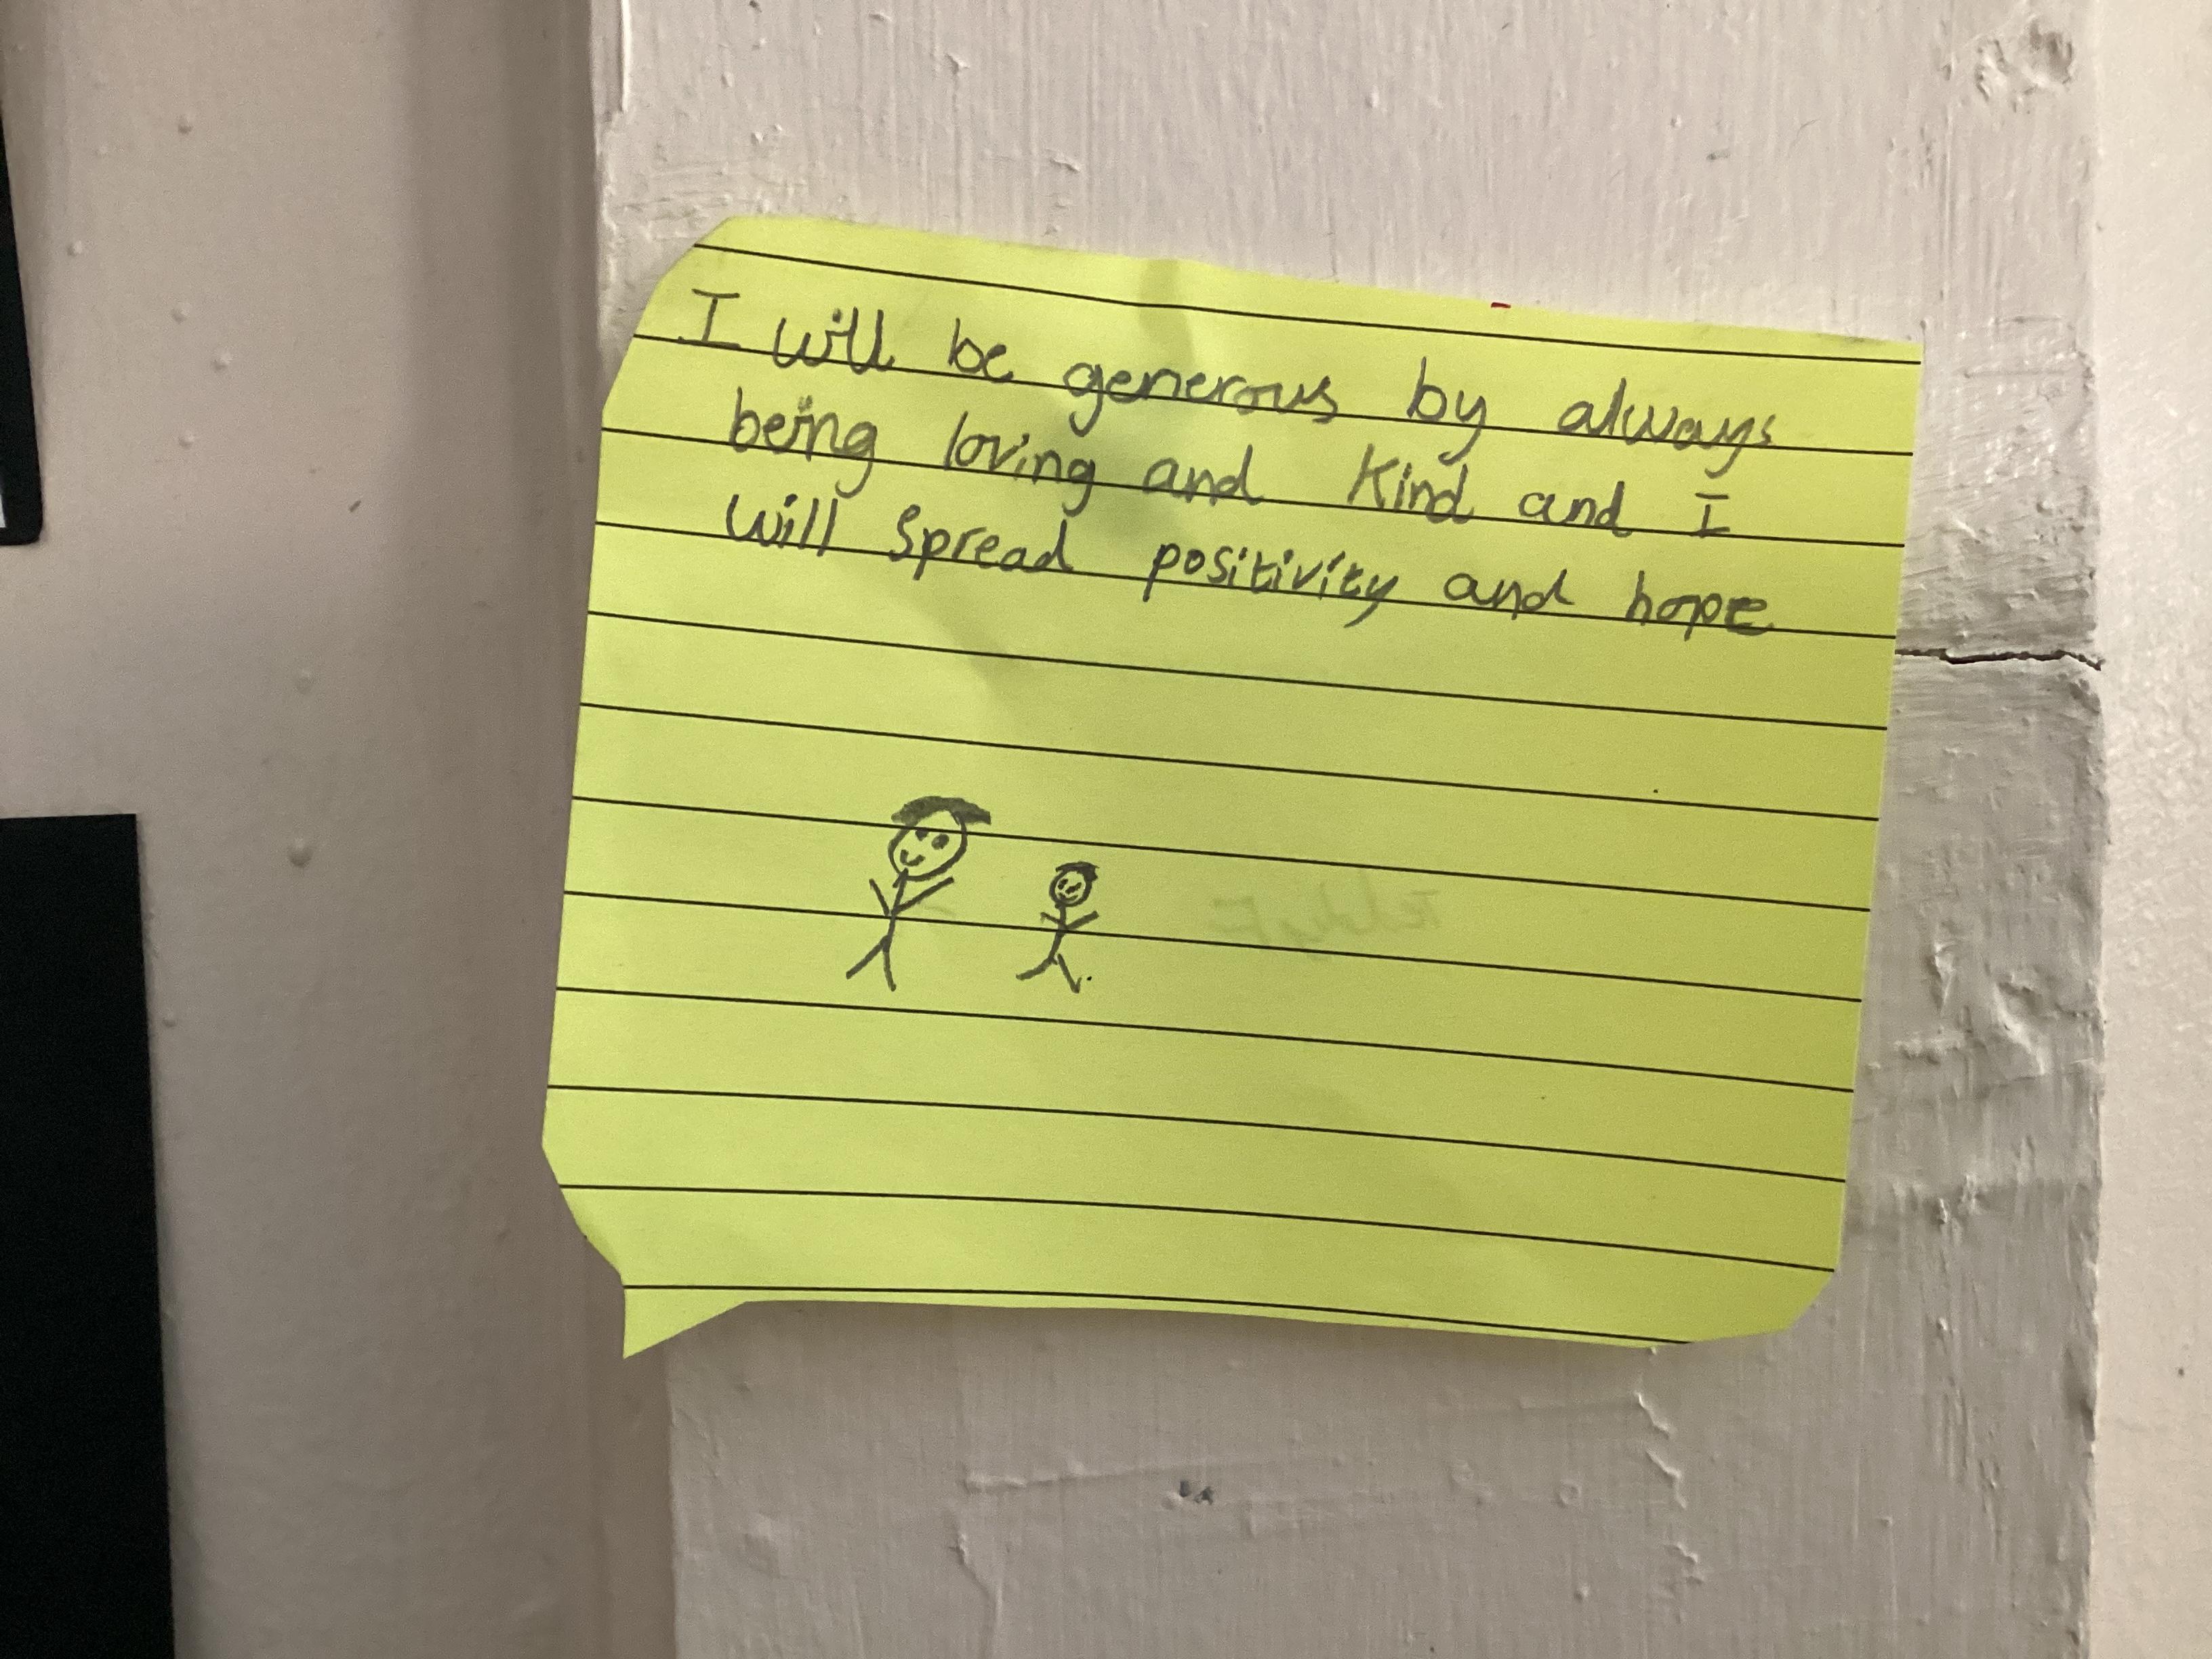 I will be generous by always
being loving and kind and I
will spread positivity and hope